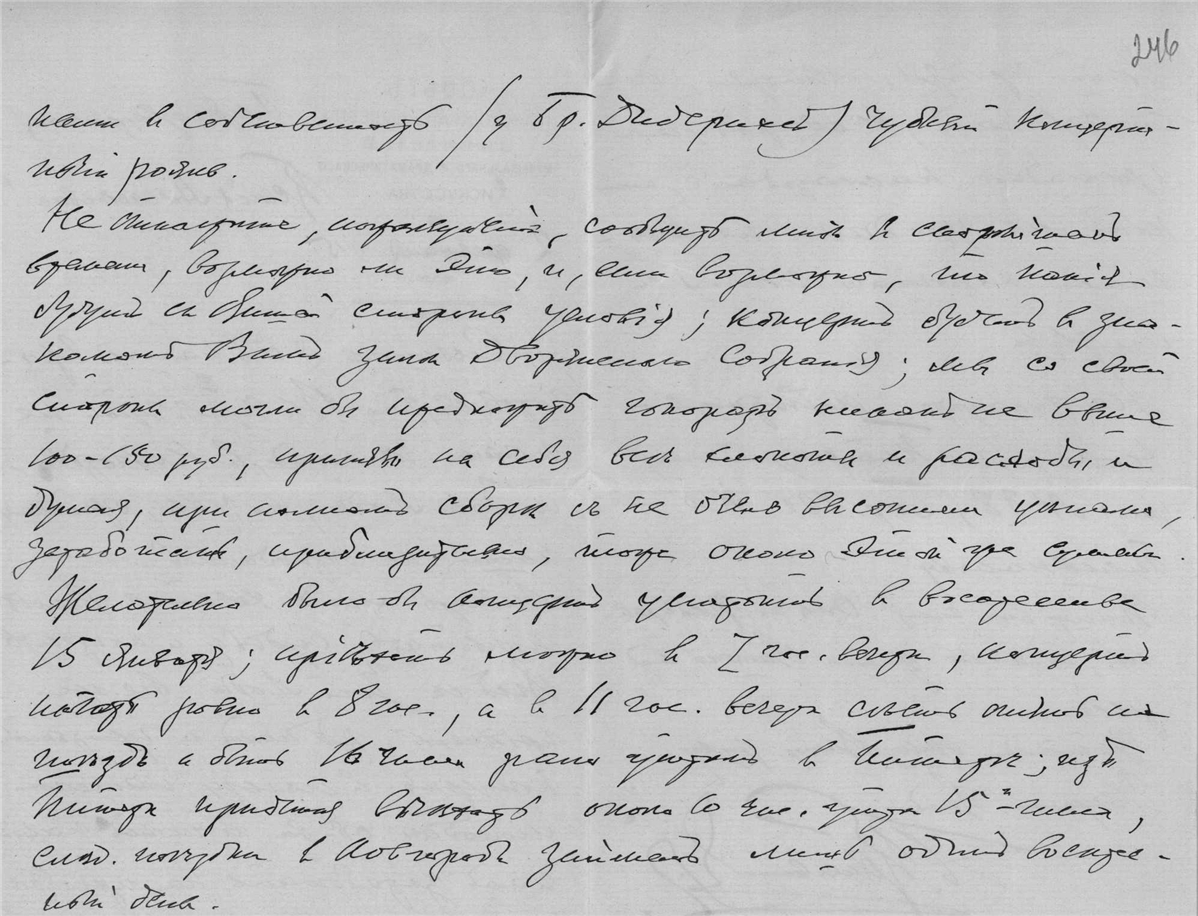 246
нами в собственность (у Бр. Дидерихс) чудный концерт-
ный рояль.
Не откажите, пожалуйста, сообщить мне в скорейшем
времени, возможно ли это, и, если возможно, то какия
будут с Вашей стороны условия; концерт будет в зна-
комом Вам зале Дворянскаго Собрания; мы со своей
стороны могли бы предложить гонорар никак не выше
100-150 руб., приняв на себя все хлопоты и расходы, и
думая, при полном сборе и не очень высоких ценах,
заработать, приблизительно, тоже около этой же суммы.
Желательно было бы концерт устроить в воскресенье
15 января; приехать можно в 7 час. вечера, концерт
начать ровно в 8 час., а в 11 час. вечера сесть опять на
поезд и быть 16 числа рано утром в Питере; из
Питера придется выехать около 10 час. утра 15го числа,
след. поездка в Новгород займет лишь один воскрес-
ный день.